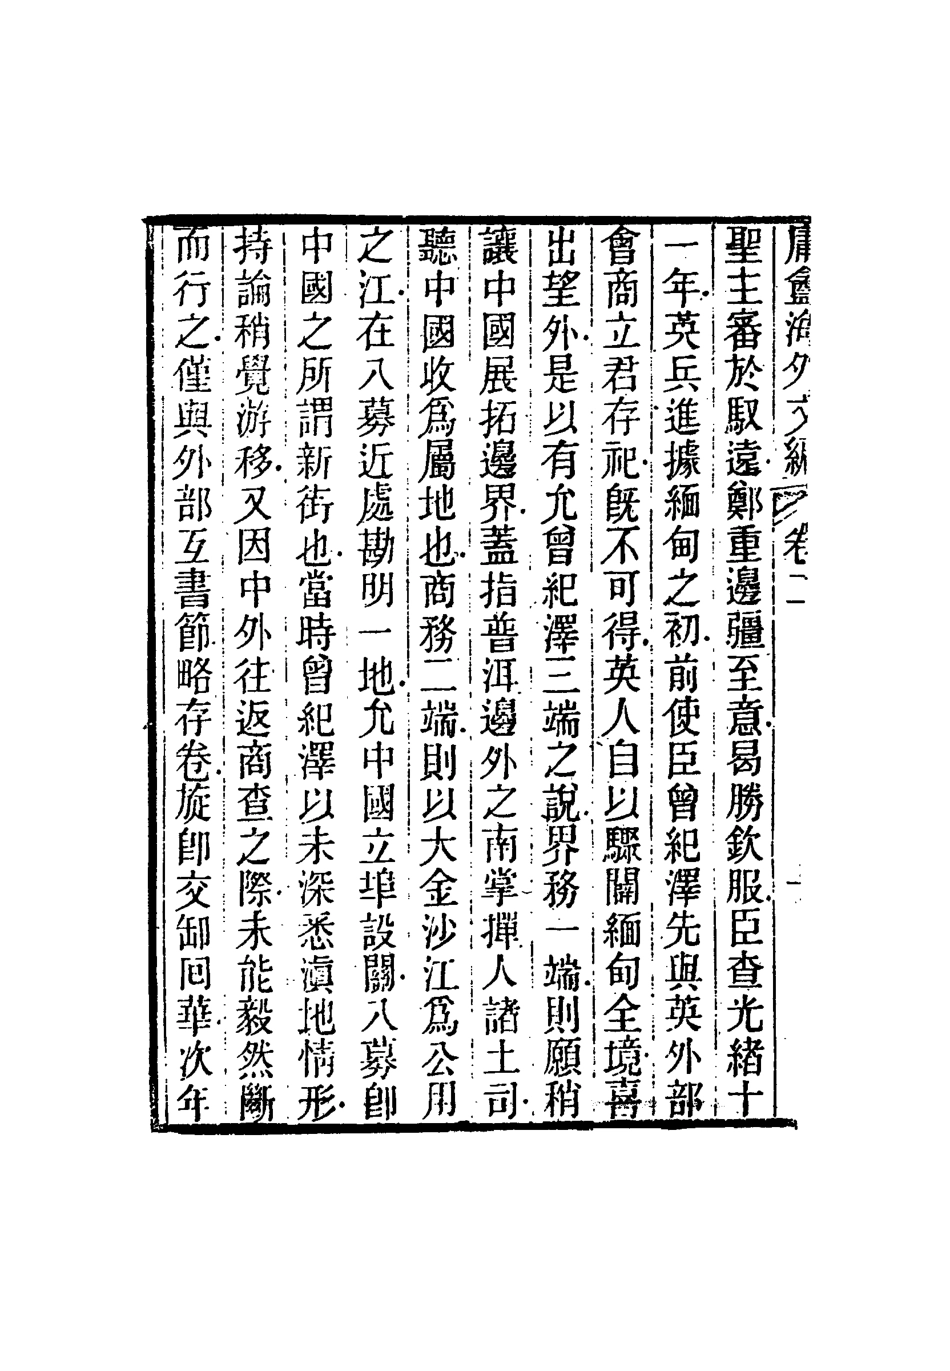 庸盦海外文編 卷二 十
聖主審於馭遠.鄭重邊疆至意.曷勝欽服.臣查光緒十
一年.英兵進據緬甸之初.前使臣曾紀澤先與英外部
會商立君存祀.旣不可得.英人自以驟闢緬甸全境.喜
出望外.是以有允曾紀澤三端之說.界務一端.則願稍
讓中國展拓邊界.蓋指普洱邊外之南掌撣人諸土司.
聽中國收爲屬地也.商務二端.則以大金沙江爲公用
之江.在八募近處勘明一地.允中國立埠設關.八募卽
中國之所謂新街也.當時曾紀澤以未深悉滇地情形.
持論稍覺游移.又因中外往返商查之際.未能毅然斷
而行之.僅與外部互書節略存卷.旋卽交卸回華.次年